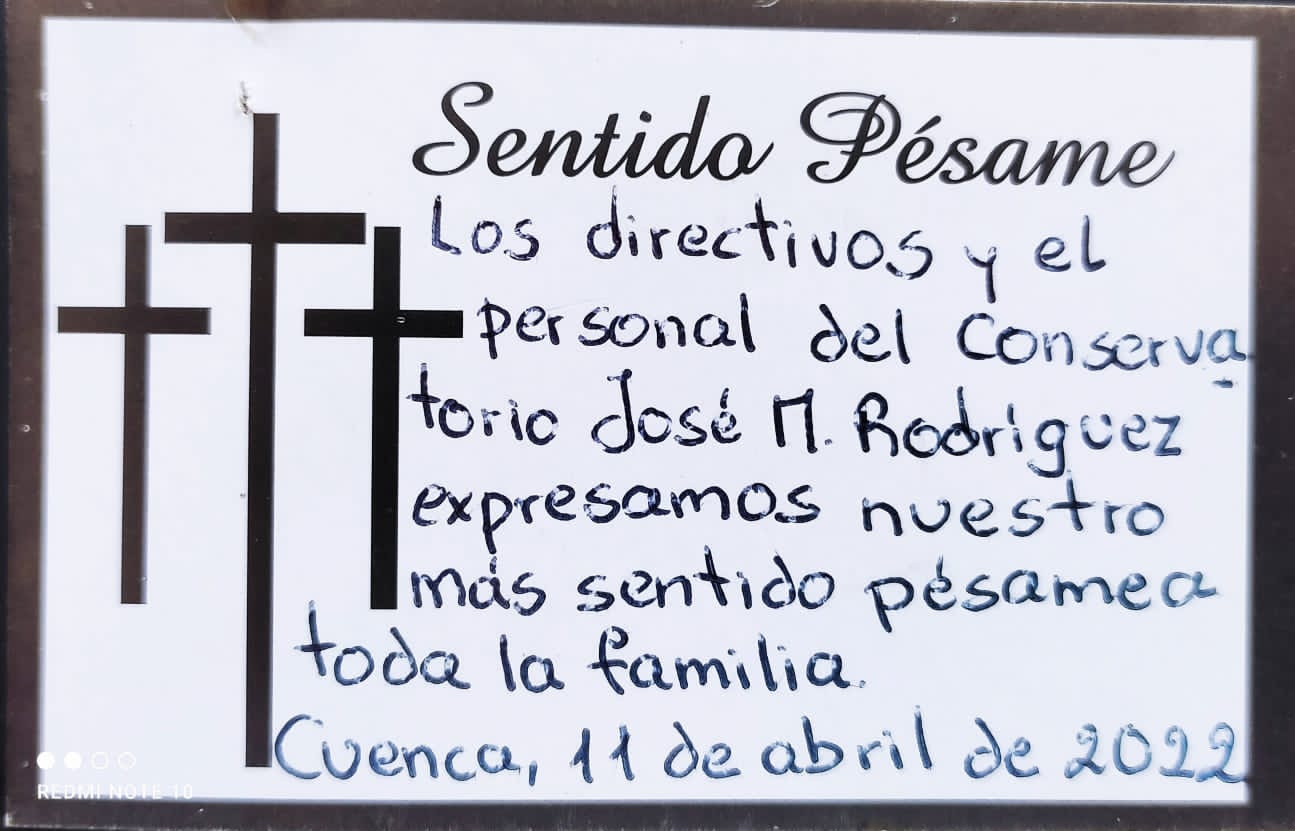 Sentido Pésame
Los directivos y el
personal del Conserva
torio José M. Rodríguez
expresamos nuestro
más sentido pésame a
toda la familia.
Cuenca, 11 de abril de 2022
REDMI NOTE 10